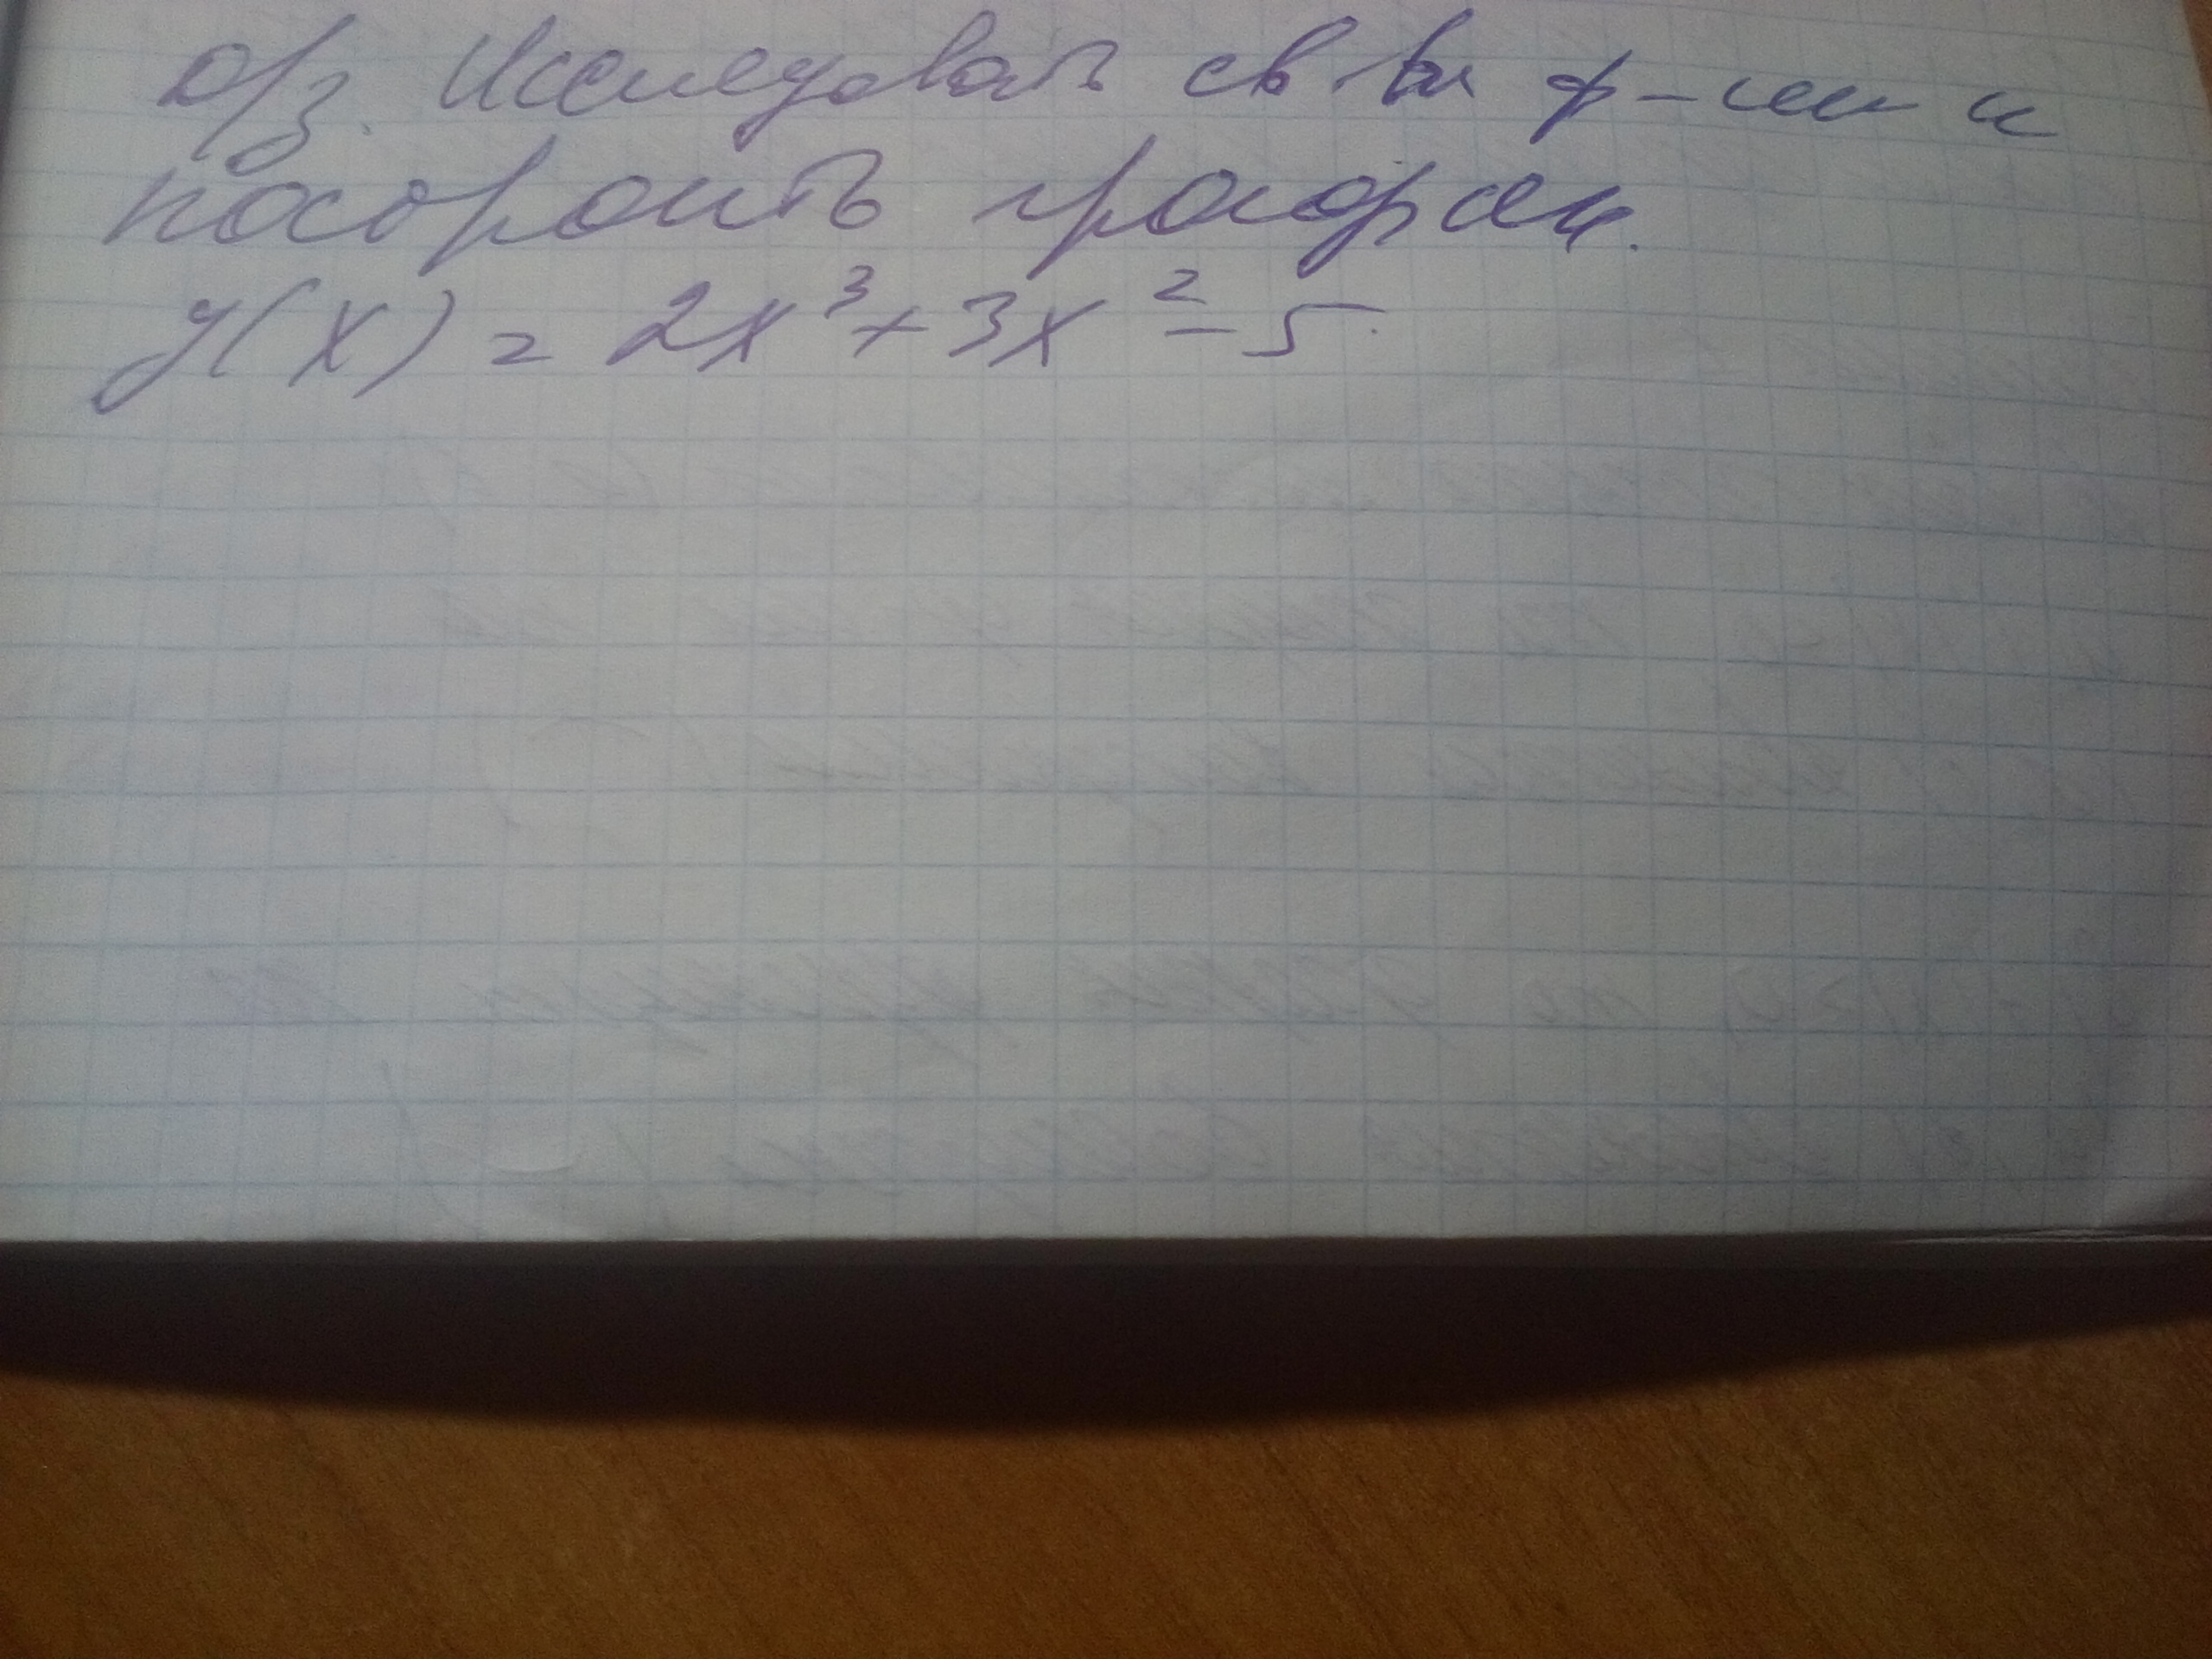 Д/з. Исследовать св-ва ф-ции и
построить график.
y(x) = 2x³+3x²-5.